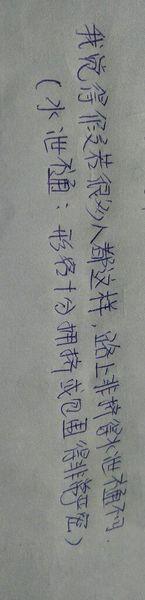 我觉得假若很多人都这样，路上非挤得水泄不通不可.
（水泄不通：形容十分拥挤或包围得非常严密）